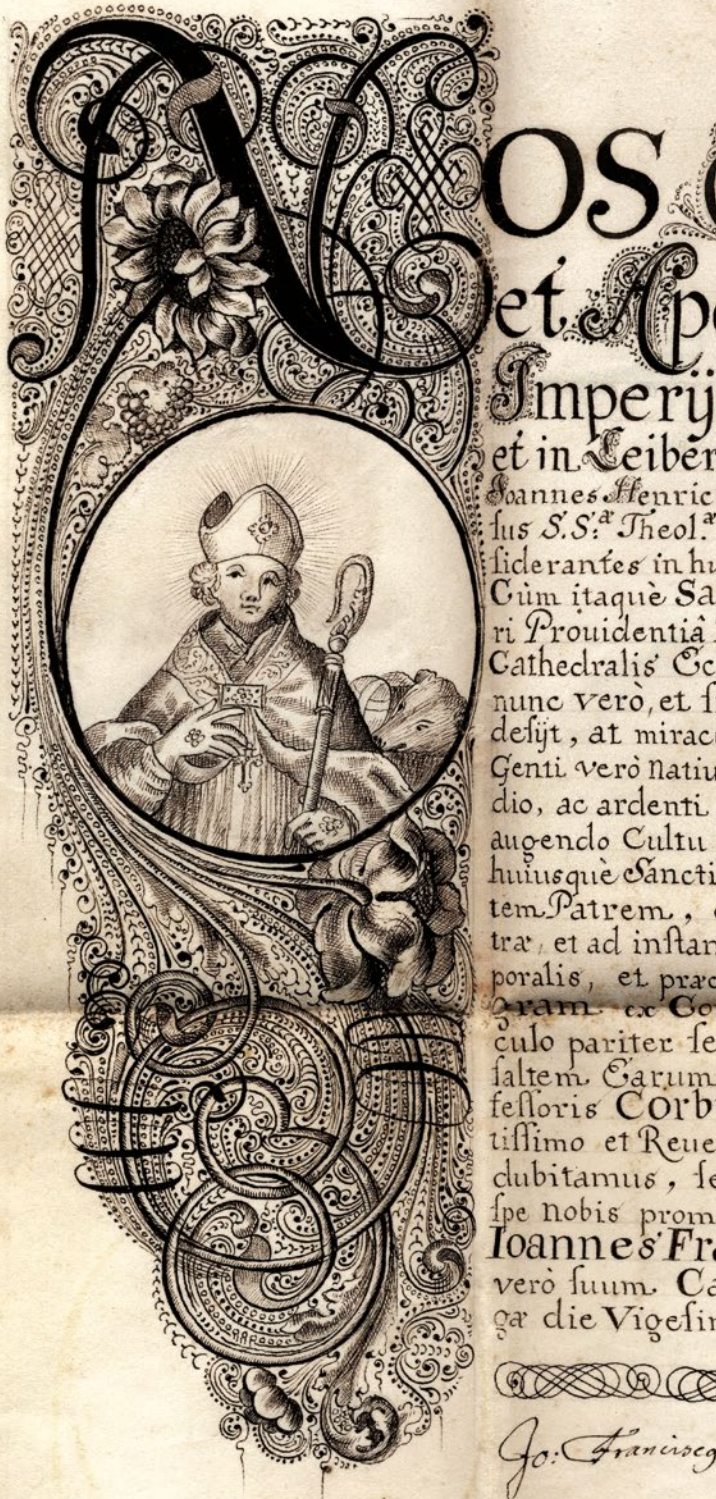 NOS
et Apo
Imperij
et in Leiber
Joannes Henric
sus S.S:æ Theol.æ
siderantes in hu
Cùm itaquè Sa
ri Prouidentiâ
Cathedralis Ec
nunc verò, et s
desijt, at mirac
Genti verò natiu
dio, ac ardenti
augendo Cultu
huiusquè Sancti
tem Patrem,
træ, et ad instan
poralis, et præc
gram ex Co
culo pariter se
saltem Earum
fessoris CORB
tissimo et Reue
dubitamus, se
spe nobis prom
Ioannes Fra
verò suum Ca
gæ die Vigesim
Jo: Franciscq